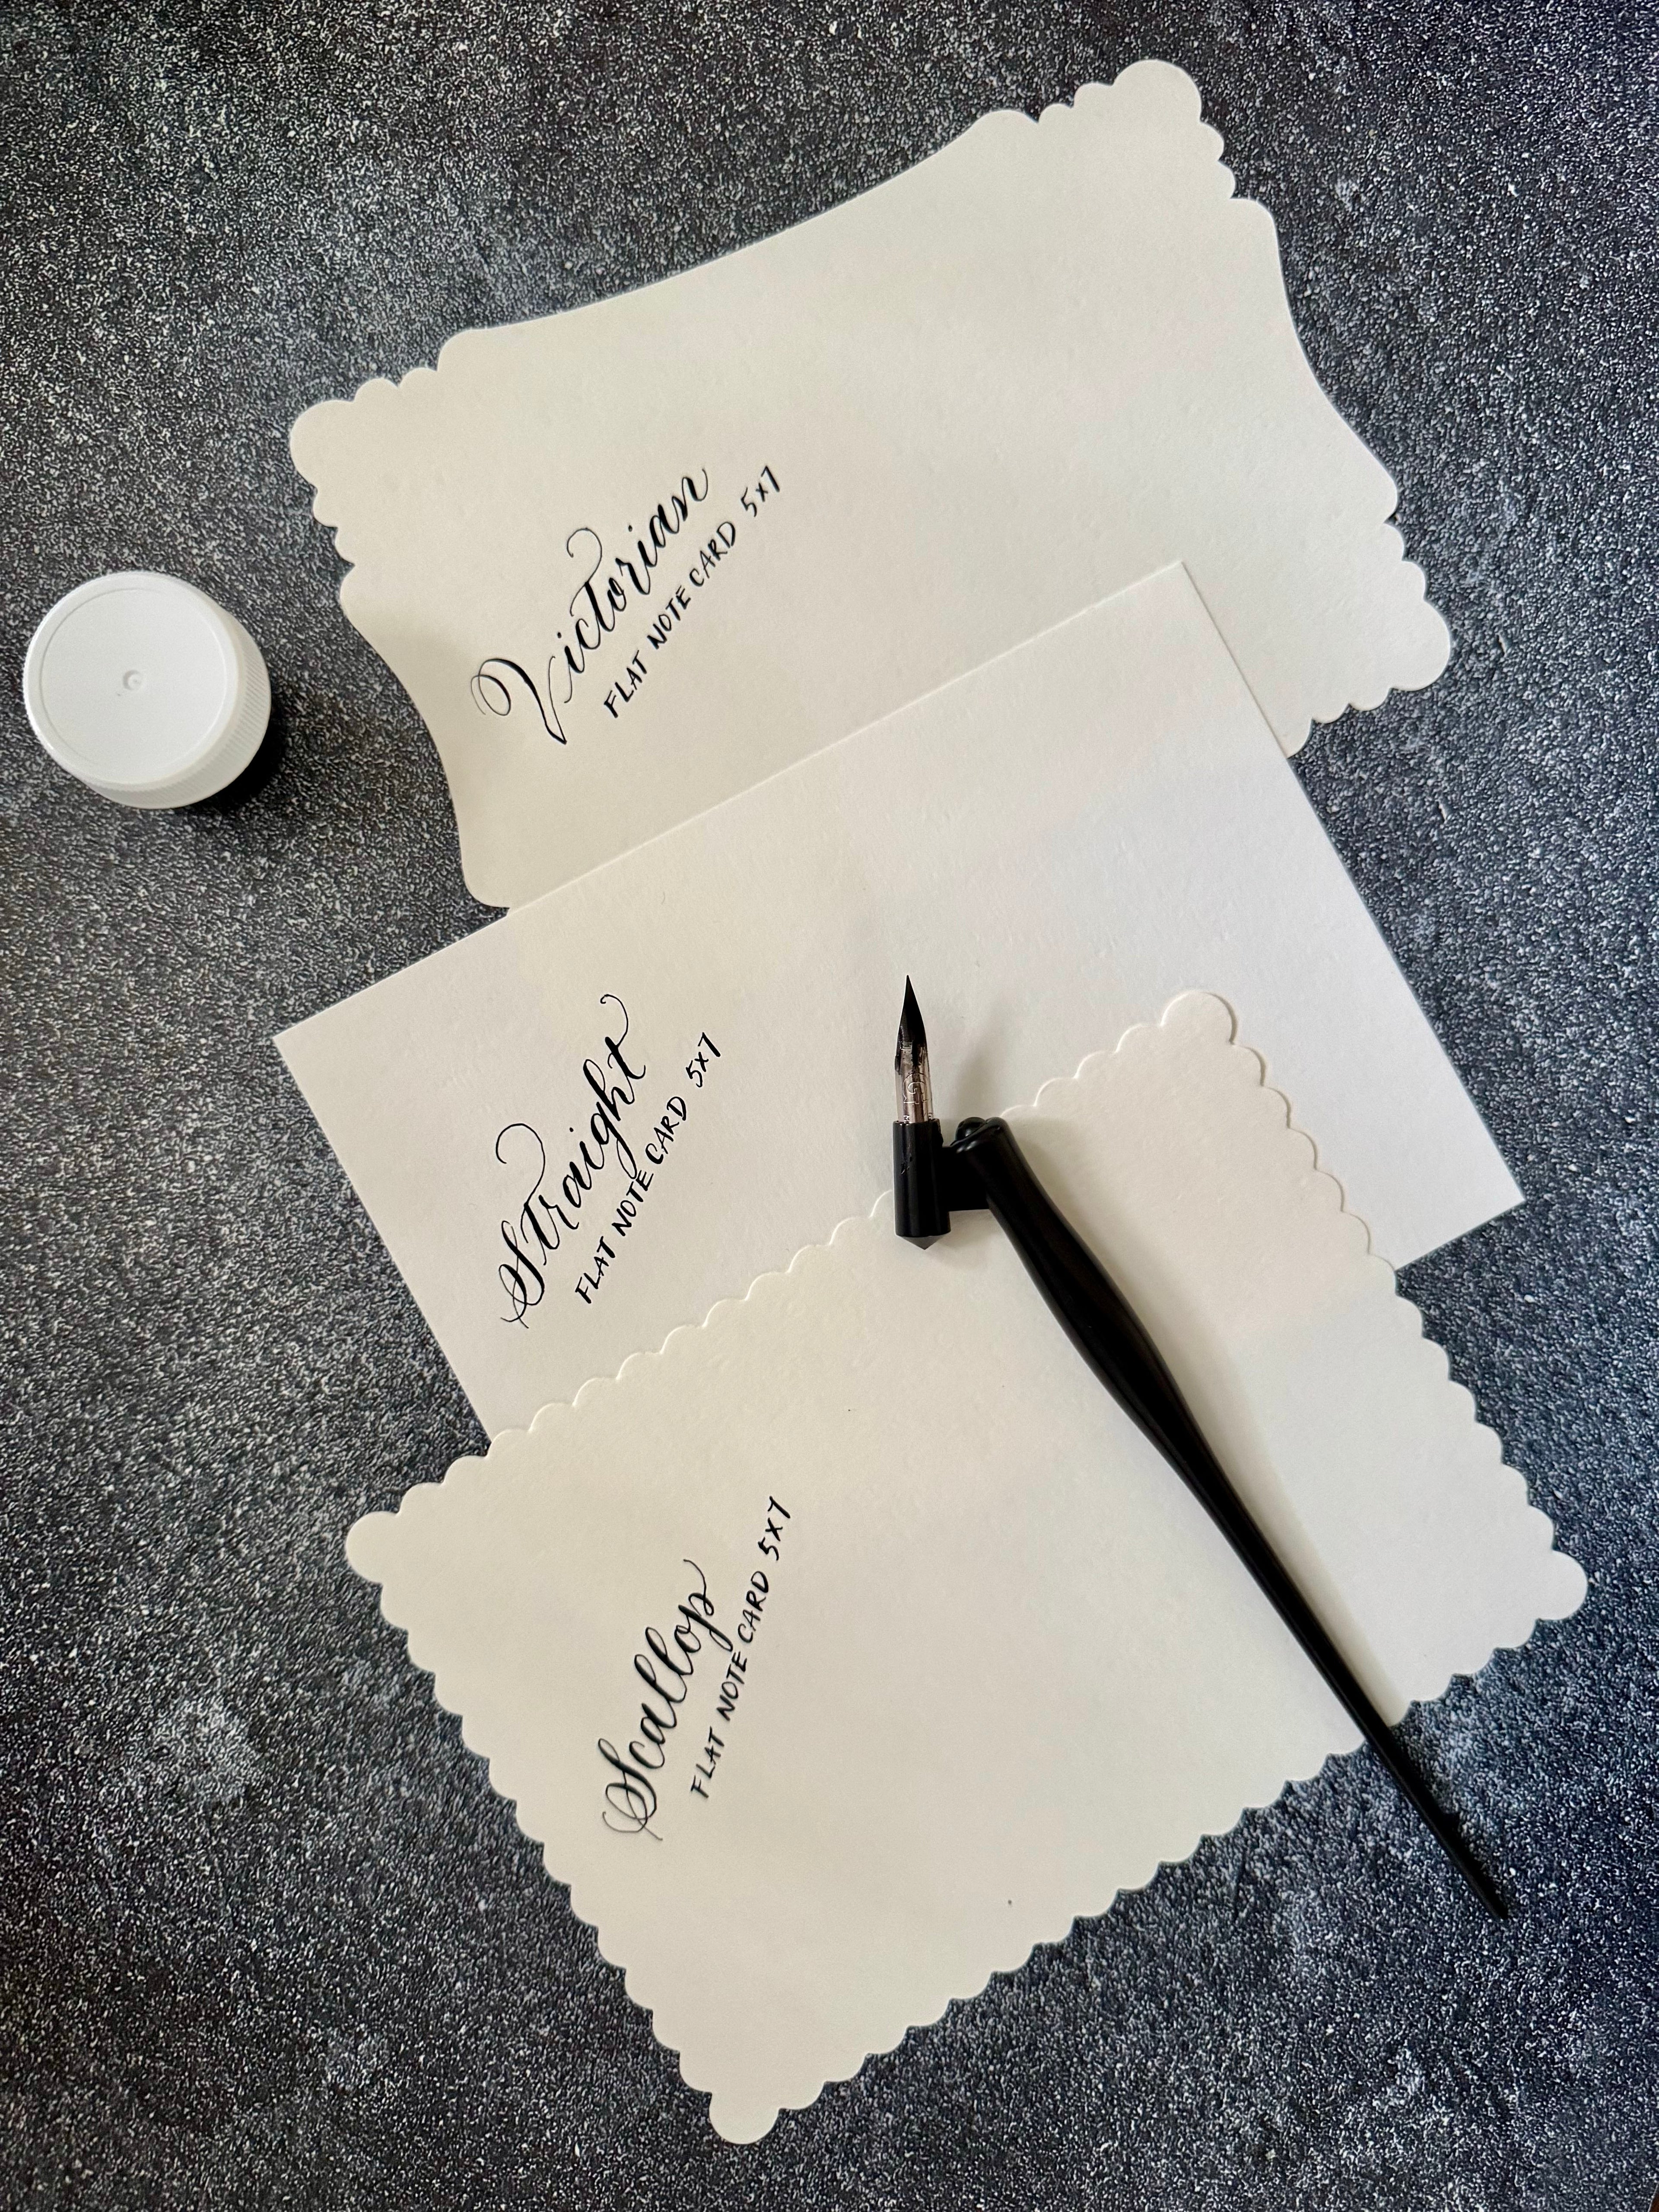 Victorian
FLAT NOTE CARD 5x7
Straight
FLAT NOTE CARD 5x7
Scallop
FLAT NOTE CARD 5x7